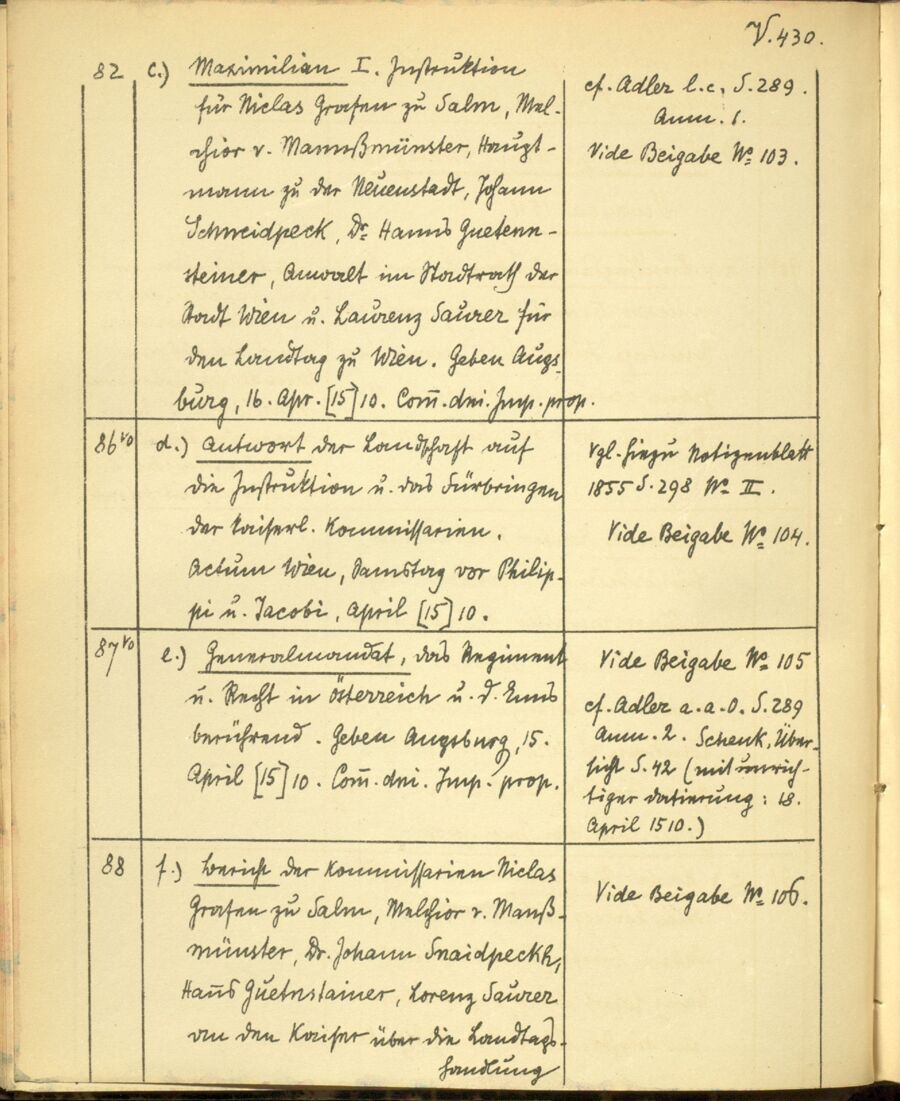 V. 430.
82 c.) Maximilian I. Instruktion
für Niclas Grafen zu Salm, Mel-
chior v. Mannßmünster, Haupt-
mann zu der Neuenstadt, Johann
Schneidpeck, Dr. Hanns Guetenn-
steiner, Anwalt im Stadtrath der
Stadt Wien u. Laurenz Saurer für
den Landtag zu Wien. Geben Augs-
burg, 16. Apr. [15]10. Com̅. dni. Imp. prop.
cf. Adler l. c. S. 289.
Anm. 1.
Vide Beigabe No 103.
86vo d.) Antwort der Landschaft auf
die Instruktion u. das Fürbringen
der kaiserl. Kommissarien.
Actum Wien, Samstag vor Philip-
pi u. Jacobi, April [15]10.
Vgl. hiezu Notizenblatt
1855 S. 298 No II.
Vide Beigabe No 104.
87vo e.) Generalmandat, das Regiment
u. Recht in Österreich u. d. Enns
berührend. Geben Augsburg, 15.
April [15]10. Com̅. dni. Imp. prop.
Vide Beigabe No 105
cf. Adler a. a. O. S. 289
Anm. 2. Schenk, Über-
sicht S. 42 (mit unrich-
tiger Datierung: 18.
April 1510.)
88 f.) Bericht der Kommissarien Niclas
Grafen zu Salm, Melchior v. Manß-
münster, Dr. Johann Snaidpeckh,
Han̅s Guetnstainer, Lorenz Saurer
an den Kaiser über die Landtags-
handlung
Vide Beigabe No 106.